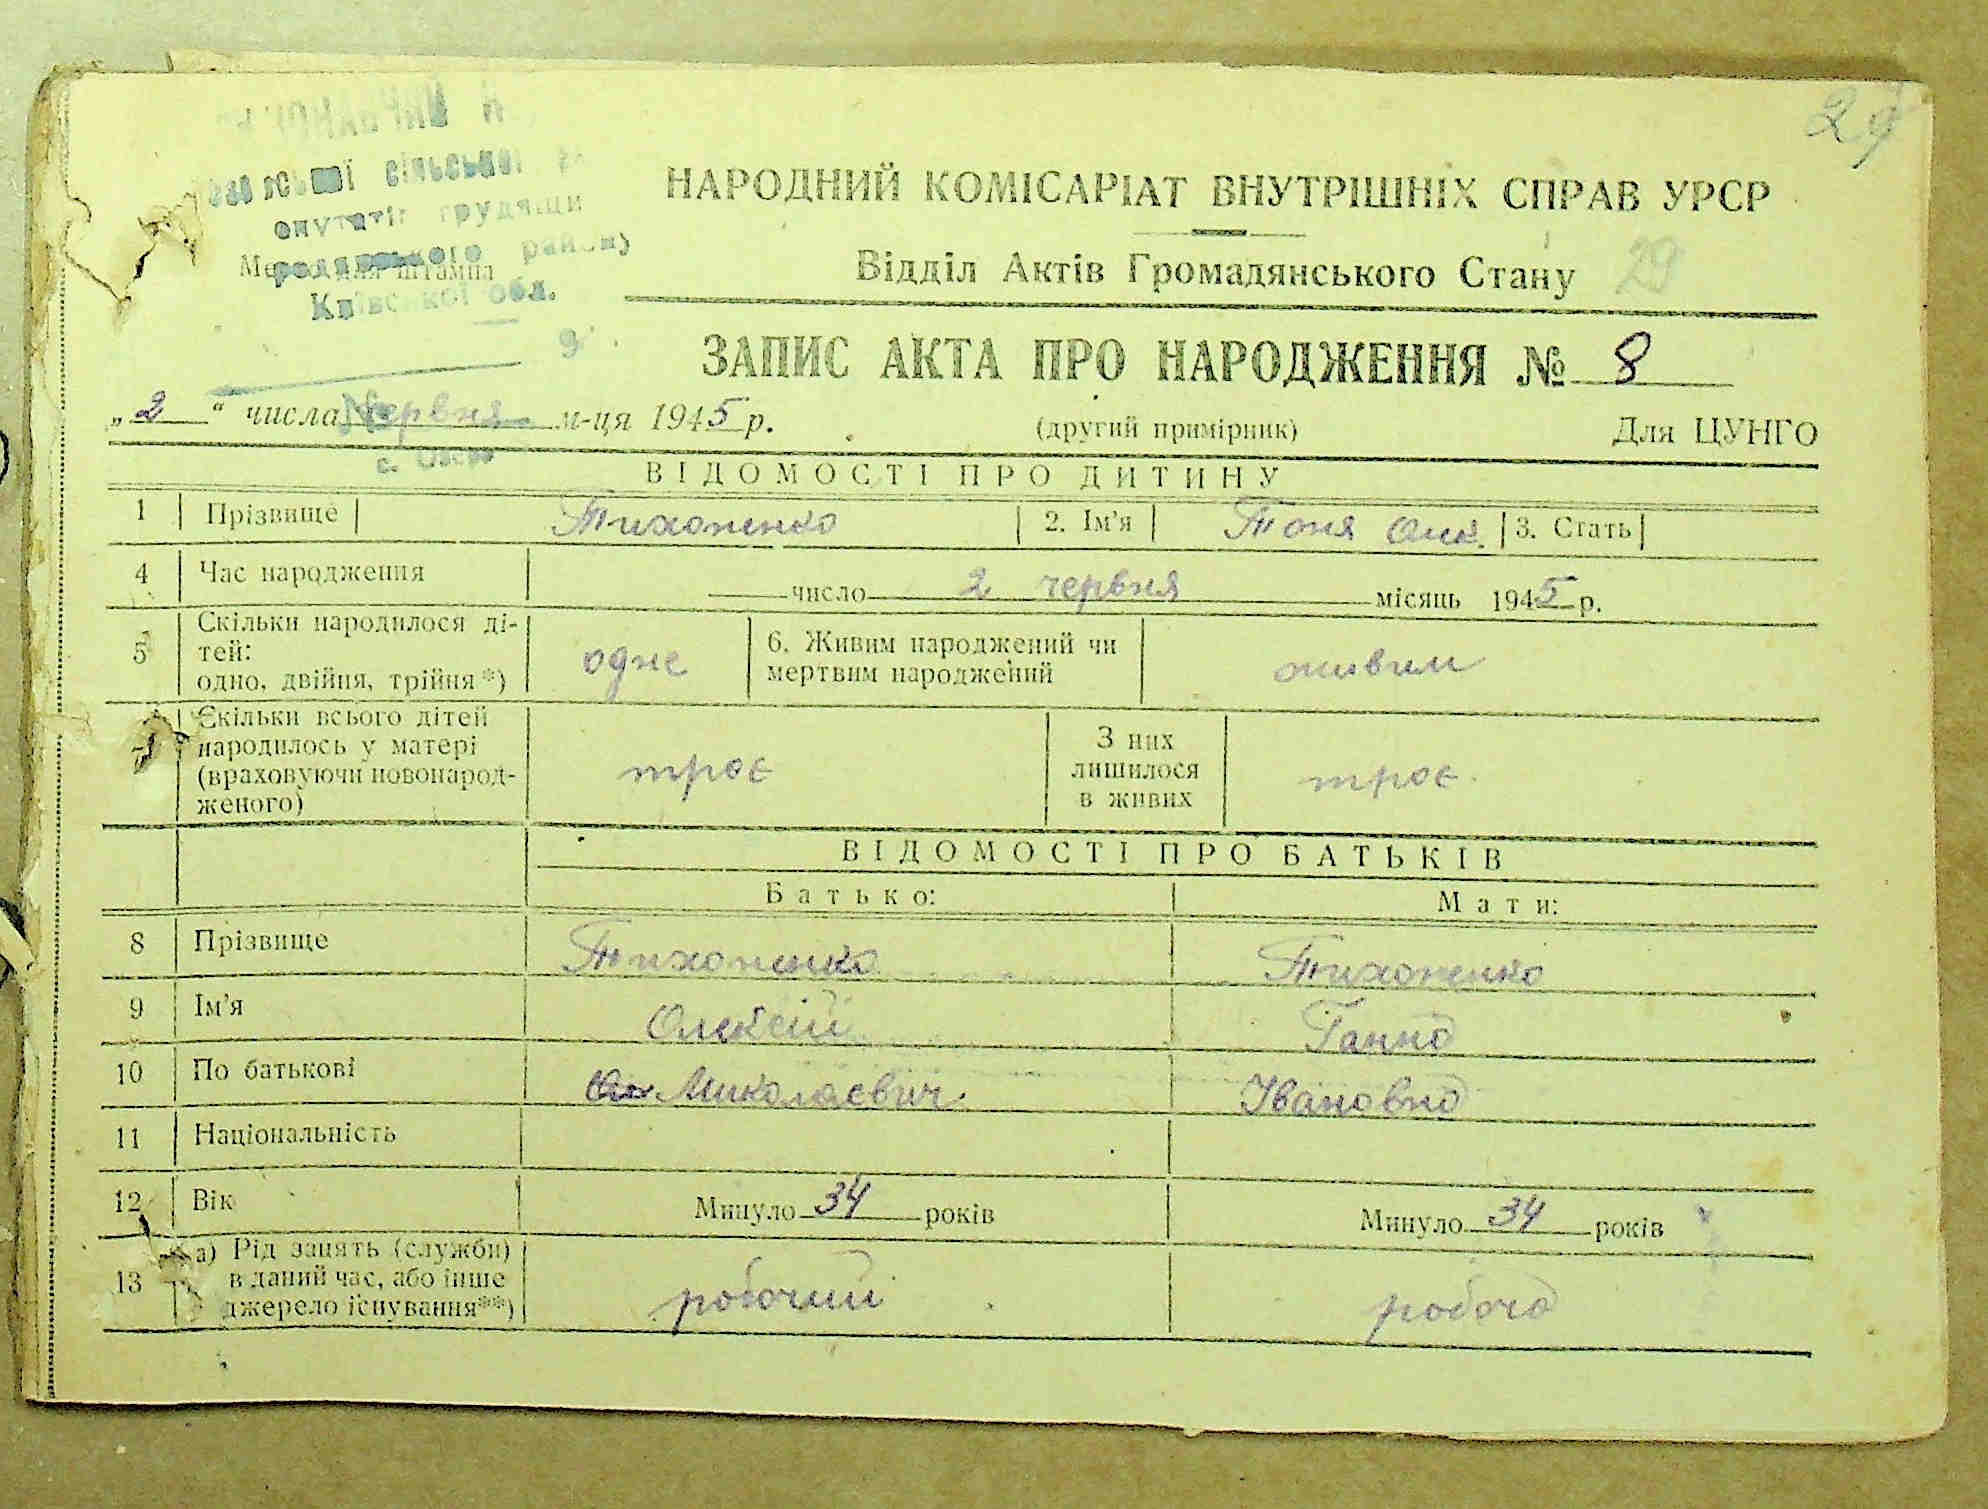 29
сільської
трудящи
району
Місце для штампа
Київської обл.
НАРОДНИЙ КОМІСАРІАТ ВНУТРІШНІХ СПРАВ УРСР
Відділ Актів Громадянського Стану 29
ЗАПИС АКТА ПРО НАРОДЖЕННЯ № 8
„2“ числа Червня м-ця 1945 р. (другий примірник) Для ЦУНГО
ВІДОМОСТІ ПРО ДИТИНУ
1 Прізвище Тихоненко 2. Ім'я Тоня Олек. 3. Стать
4 Час народження число 2 червня місяць 1945 р.
5 Скільки народилося ді-
тей:
одно, двійня, трійня*) одне 6. Живим народжений чи
мертвим народжений живим
Скільки всього дітей
народилось у матері
(враховуючи новонарод-
женого) троє З них
лишилося
в живих троє
ВІДОМОСТІ ПРО БАТЬКІВ
Батько: Мати:
8 Прізвище Тихоненко Тихоненко
9 Ім'я Олексій Ганна
10 По батькові Миколаєвич Івановна
11 Національність
12 Вік Минуло 34 років Минуло 34 років
13 а) Рід занять (служби)
в даний час, або інше
джерело існування**) робочий робоча